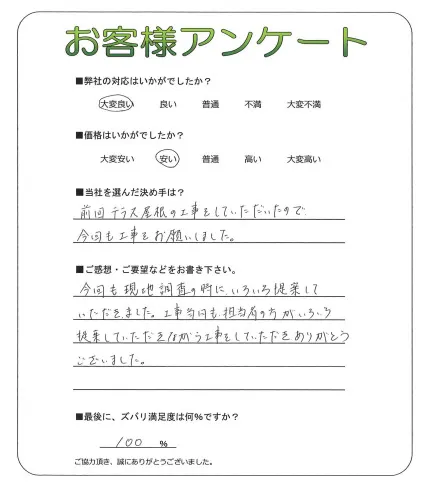 お客様アンケート
■弊社の対応はいかがでしたか？
大変良い 良い 普通 不満 大変不満
■価格はいかがでしたか？
大変安い 安い 普通 高い 大変高い
■当社を選んだ決め手は？
前回テラス屋根の工事をしていただいたので
今回も工事をお願いしました。
■ご感想・ご要望などをお書き下さい。
今回も現地調査の時に、いろいろ提案して
いただきました。工事当日も、担当者の方がいろいろ
提案していただきながら工事をしていただきありがとう
ございました。
■最後に、ズバリ満足度は何％ですか？
100 ％
ご協力頂き、誠にありがとうございました。